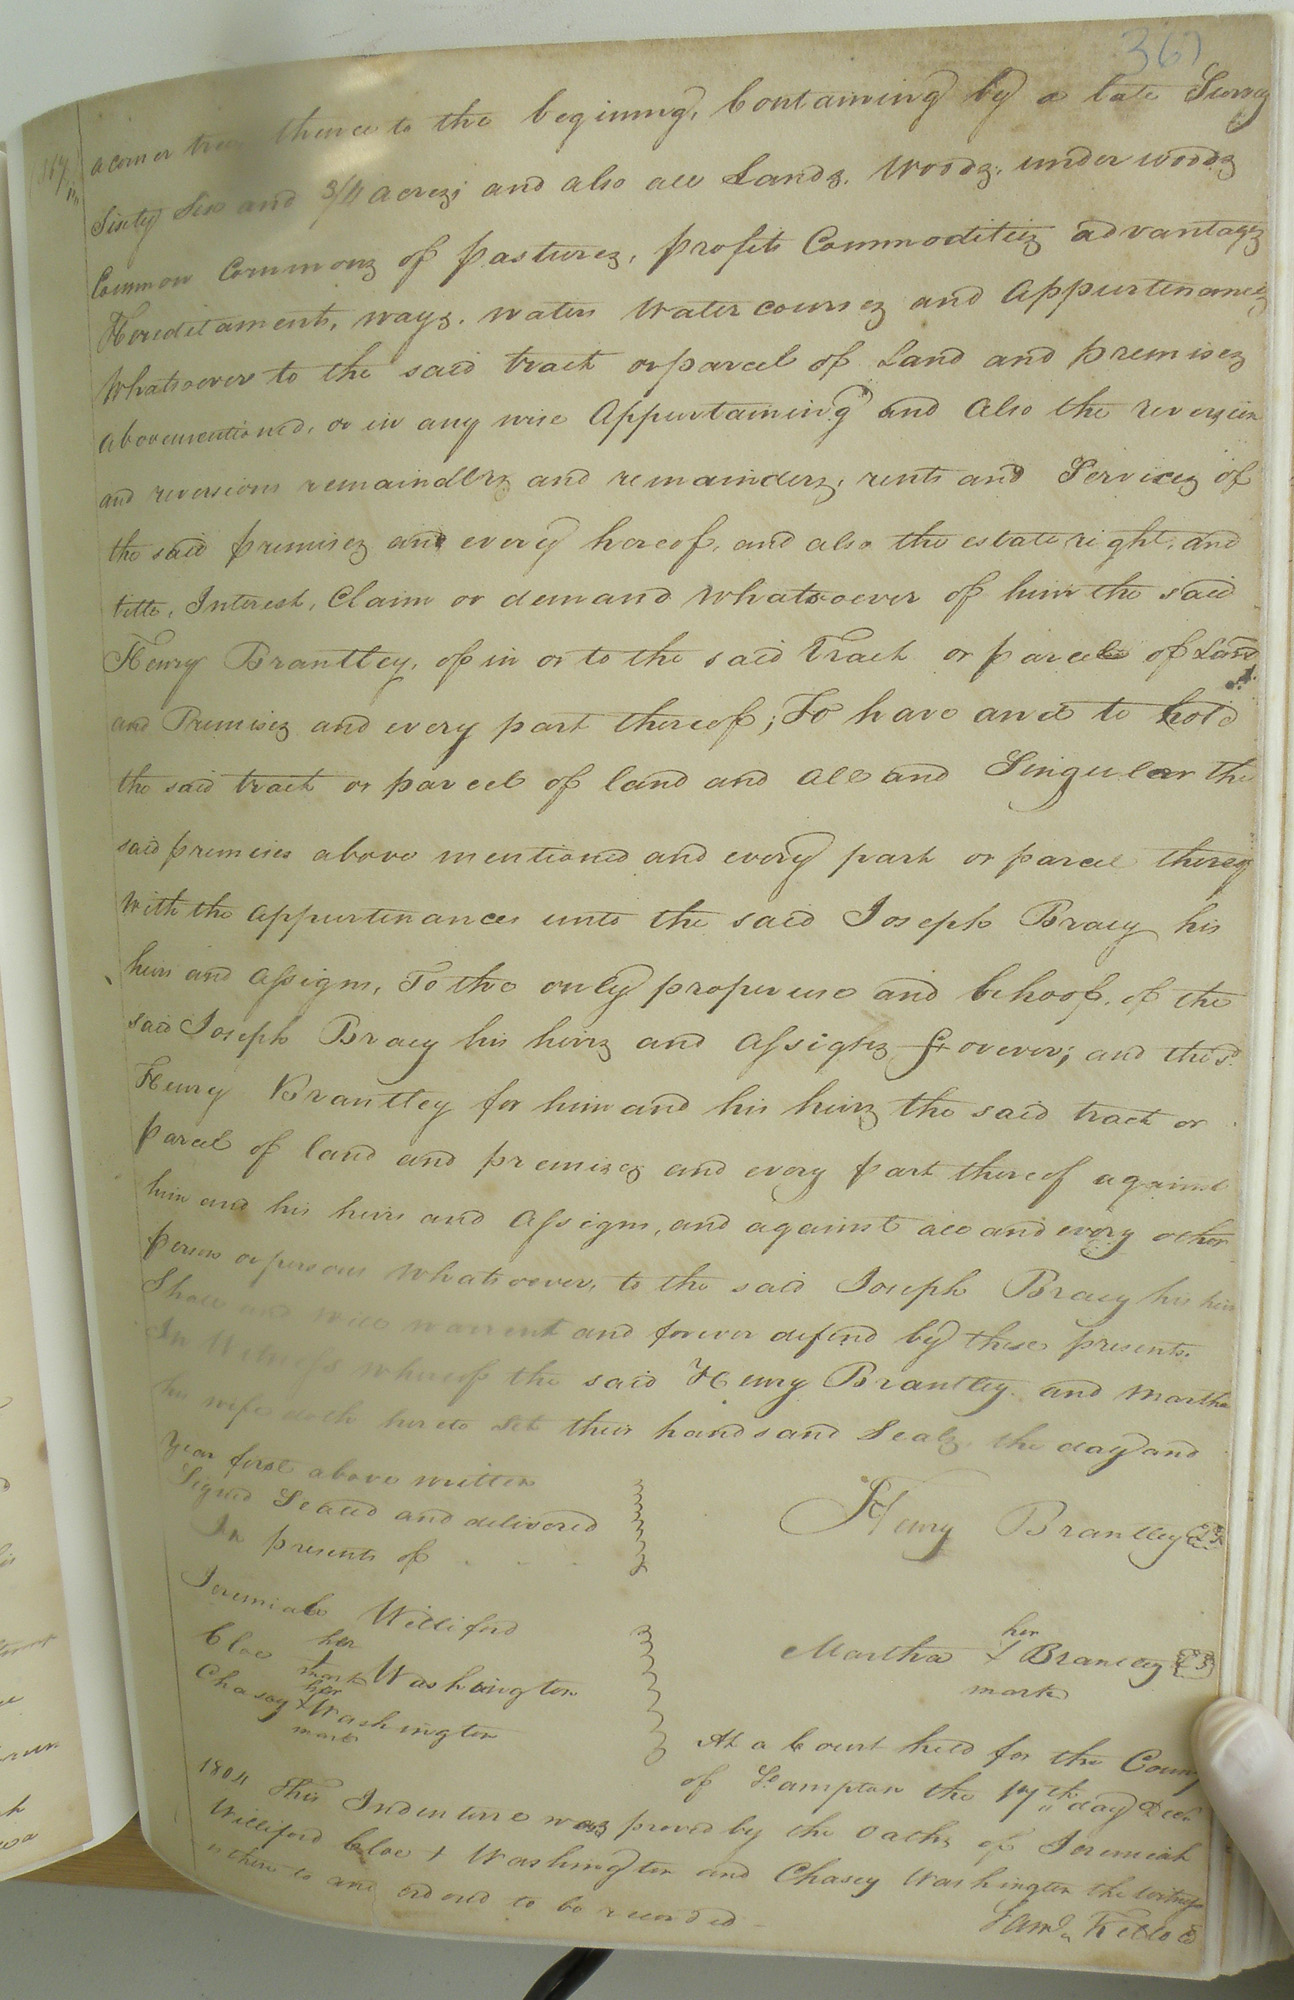 367
a corner tree thence to the begining, Containing by a late Survey
Sixty Six and 3/4 acres; and also all Lands, Woods, under woods
Common Commons of pastures, profits Commodities advantages
Hereditaments, ways, waters Water courses and Appurtenances
Whatsoever to the said tract or parcel of Land and premises
abovementioned, or in any wise Appurtaining and Also the reversion
and reversions remainders and remainders, rents and Services of
the said premises and every hereof, and also the estate right, and
title, Interest, Claim or demand whatsoever of him the said
Henry Brantley, of in or to the said Tract or parcel of Land
and Premises and every part thereof; To have and to hold
the said tract or parcel of land and all and Singular the
said premises above mentioned and every part or parcel thereof
With the appurtenances unto the said Joseph Bracy his
heirs and Assigns, To the only proper use and behoof, of the
said Joseph Bracy his heirs and Assigns forever; and the sd.
Henry Brantley for him and his heirs the said tract or
parcel of land and premises and every part thereof against
him and his heirs and Assigns, and against all and every other
person or persons whatsoever, to the said Joseph Bracy his heirs
Shall and will warrent and forever defend by these presents.
In Witness whereof the said Henry Brantley and Martha
his wife doth hereto Set their hands and Seals the day and
year first above written
Signed Sealed and delivered
In presents of
Henry Brantley LS
Jeremiah Williford
Cloe her + mark Washington
Chasey her + mark Washington
Martha her + mark Brantley LS
At a Court held for the County
of Sampton the 17th day Decr.
1804 This Indenture was proved by the Oaths of Jeremiah
Williford Cloe + Washington and Chasey Washington the witness
thereto and ordered to be recorded
Saml. Kello